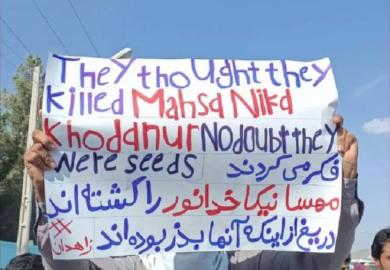 They thought they
killed Mahsa Nika
Khodanur No doubt they
were seeds فکر می کردند
مهسا نیکا خدانور را کشته اند
دریغ از اینکه آنها بذر بوده اند
#زاهدان